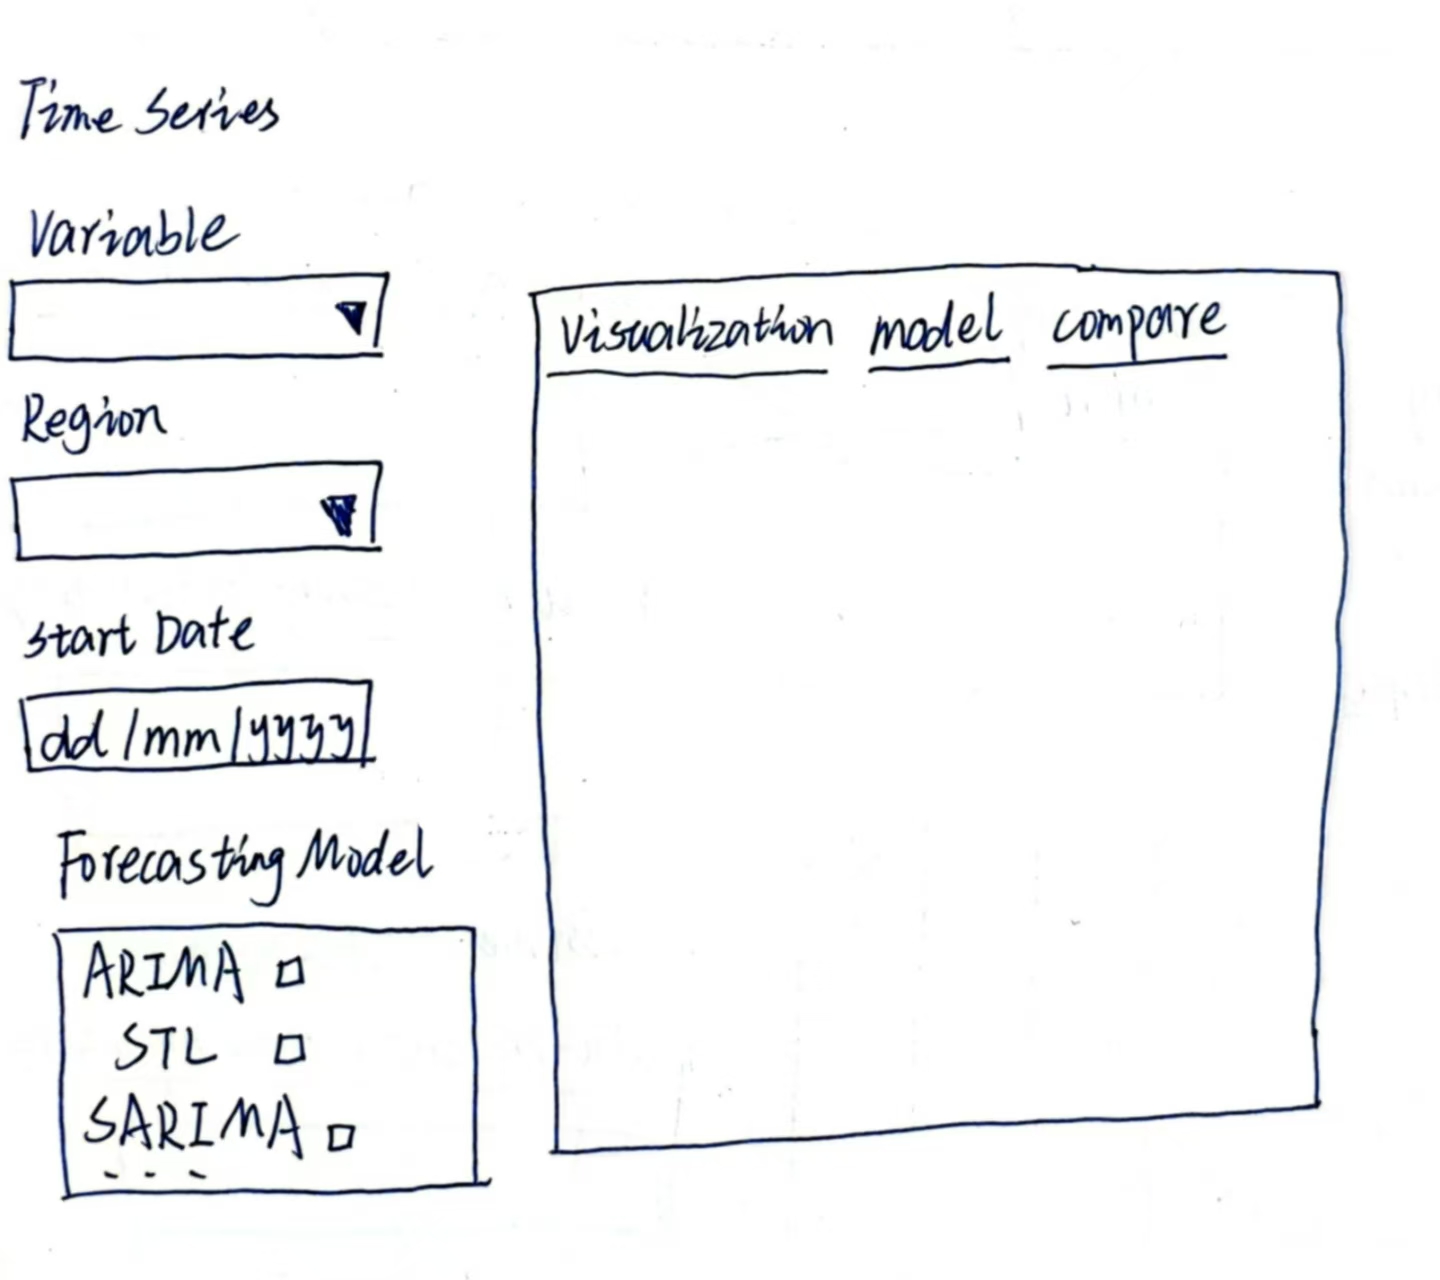 Time Series
Variable
Region
Start Date
dd/mm/yyyy
Forecasting Model
ARIMA
STL
SARIMA
...
Visualization model compare